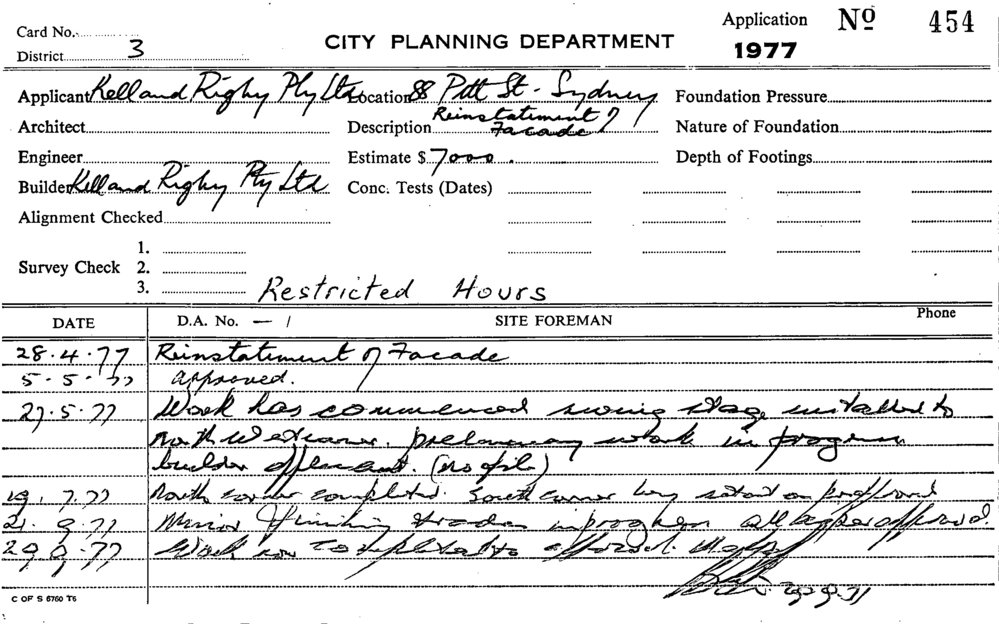 Card No. Application Nº 454
District 3 CITY PLANNING DEPARTMENT 1977
Applicant Kell and Rigby Pty Ltd Location 88 Pitt St - Sydney Foundation Pressure
Architect Description Reinstatement of Facade Nature of Foundation
Engineer Estimate $ 7000. Depth of Footings
Builder Kell and Rigby Pty Ltd Conc. Tests (Dates)
Alignment Checked
1.
Survey Check 2.
3. Restricted Hours
DATE D.A. No. — / SITE FOREMAN Phone
28.4.77 Reinstatement of Facade
5-5-77 approved.
27.5.77 Work has commenced swing stage installed to
North West corner. preliminary work in progress
builder applicant. (no file)
19.7.77 North corner completed. South corner being
21.9.77 Minor finishing trades in progress all as per approved.
29.9.77 Work now completed to approved
29.9.77
C OF S 6760 T6